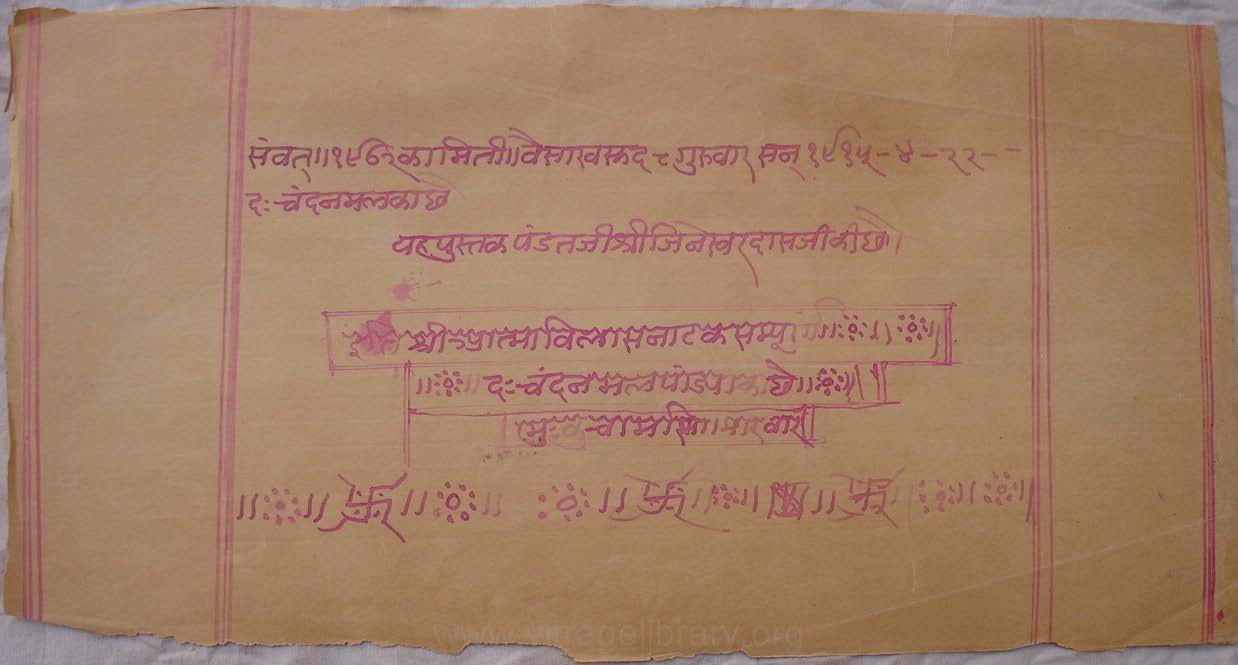 संवत्॥१९७२का मिती॥वैसाख सुद ८ गुरुवार सन् १९१५-४-२२--
द:-चंदनमलका छै
यह पुस्तक पंडतजी श्री जिनेस्वरदासजी की छै।
इति श्री आत्माविलास नाटक सम्पूर्ण॥
॥ द:-चंदनमल पांडया का छै॥
मु:कुचामसिटी।मारवाड॥
www.virragelibrary.org